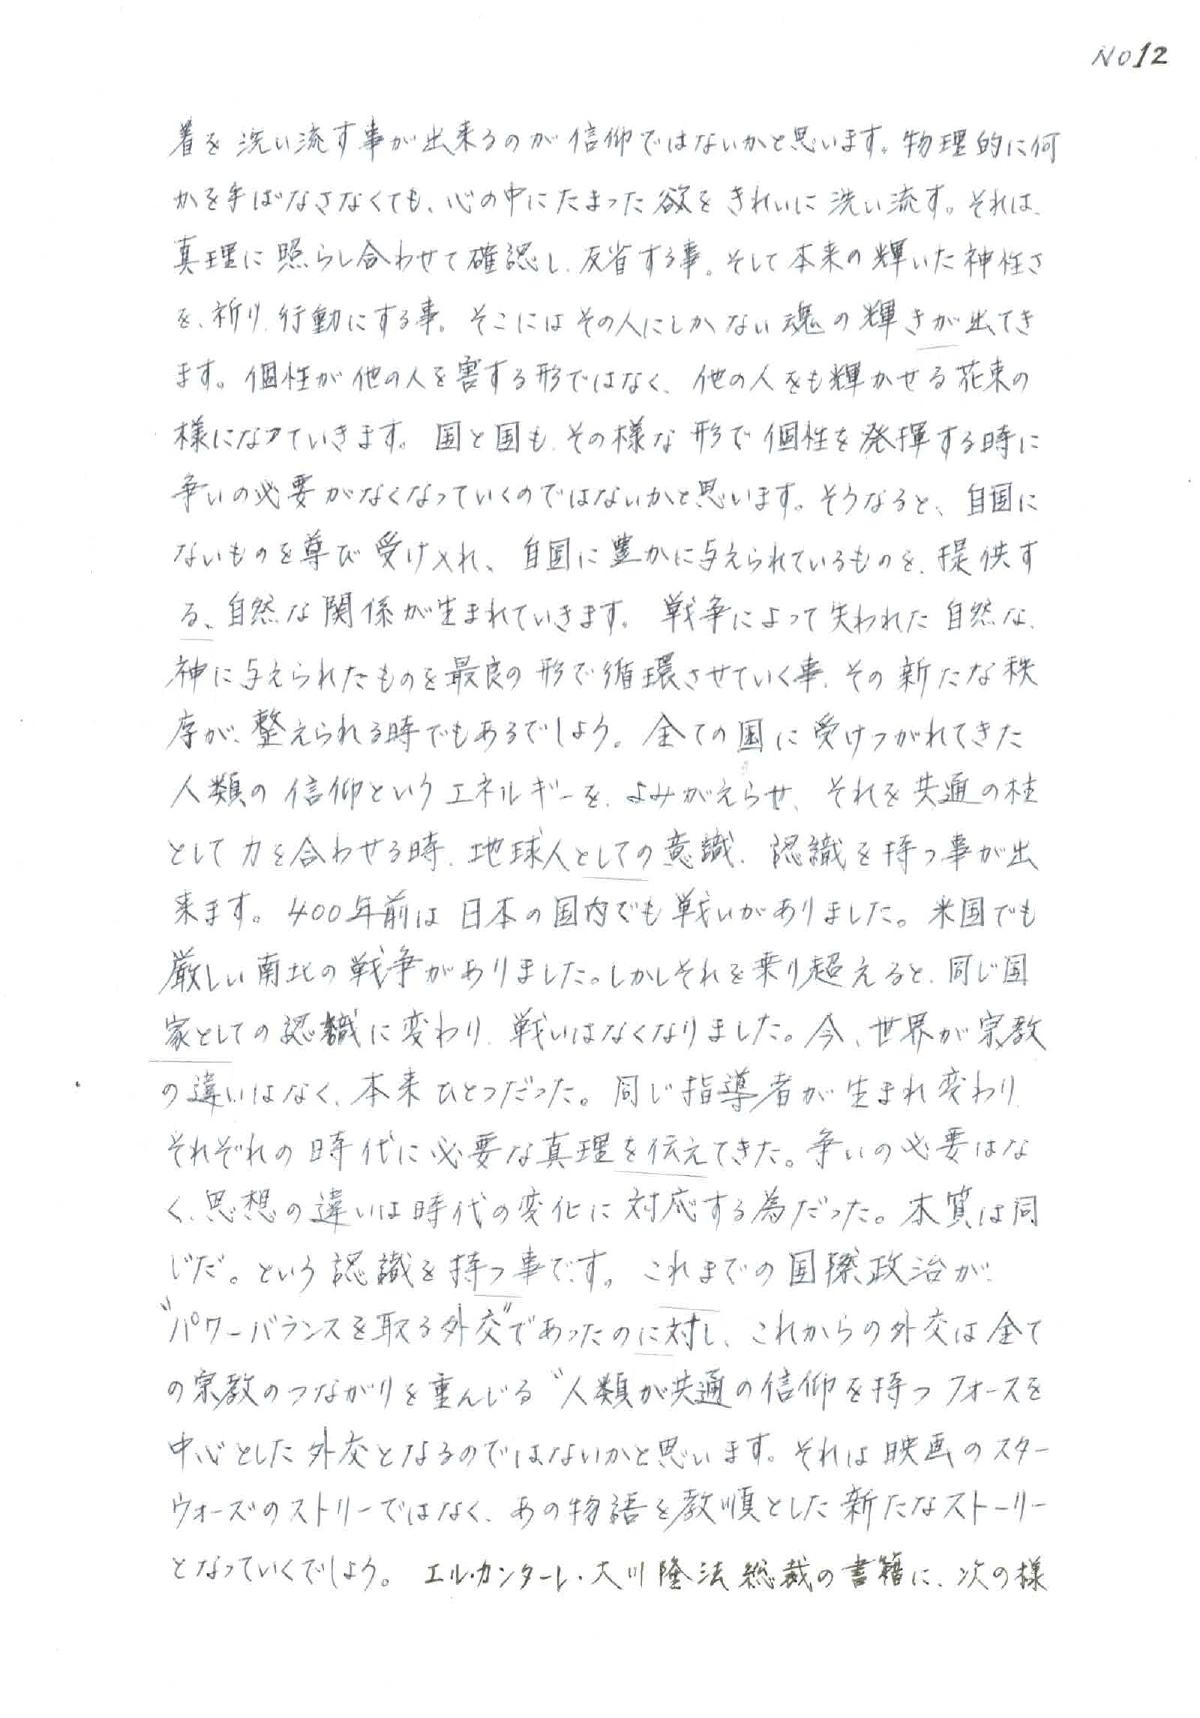 NO12
着を洗い流す事が出来るのが信仰ではないかと思います。物理的に何
かを手ばなさなくても、心の中にたまった欲をきれいに洗い流す。それは、
真理に照らし合わせて確認し、反省する事。そして本来の輝いた神性さ
を、祈り、行動にする事。そこにはその人にしかない魂の輝きが出てき
ます。個性が他の人を害する形ではなく、他の人をも輝かせる花束の
様になっていきます。国と国も、その様な形で個性を発揮する時に
争いの必要がなくなっていくのではないかと思います。そうなると、自国に
ないものを尊び受け入れ、自国に豊かに与えられているものを、提供す
る、自然な関係が生まれていきます。戦争によって失われた自然な、
神に与えられたものを最良の形で循環させていく事、その新たな秩
序が、整えられる時でもあるでしょう。全ての国に受けつがれてきた
人類の信仰というエネルギーを、よみがえらせ、それを共通の柱
として力を合わせる時、地球人としての意識、認識を持つ事が出
来ます。400年前は日本の国内でも戦いがありました。米国でも
厳しい南北の戦争がありました。しかしそれを乗り超えると、同じ国
家としての認識に変わり、戦いはなくなりました。今、世界が宗教
の違いはなく、本来ひとつだった。同じ指導者が生まれ変わり、
それぞれの時代に必要な真理を伝えてきた。争いの必要はな
く、思想の違いは時代の変化に対応する為だった。本質は同
じだ。という認識を持つ事です。これまでの国際政治が、
〝パワーバランスを取る外交〟であったのに対し、これからの外交は全て
の宗教のつながりを重んじる〝人類が共通の信仰を持つフォースを
中心とした外交となるのではないかと思います。それは映画のスター
ウォーズのストリーではなく、あの物語を教順とした新たなストーリー
となっていくでしょう。エル・カンターレ・大川隆法総裁の書籍に、次の様